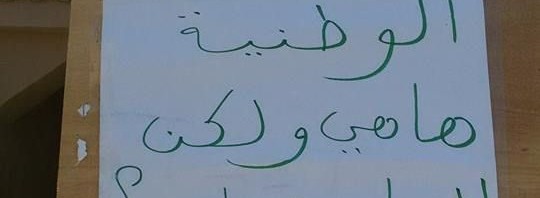 الوطنية
هاهي ولكن
؟